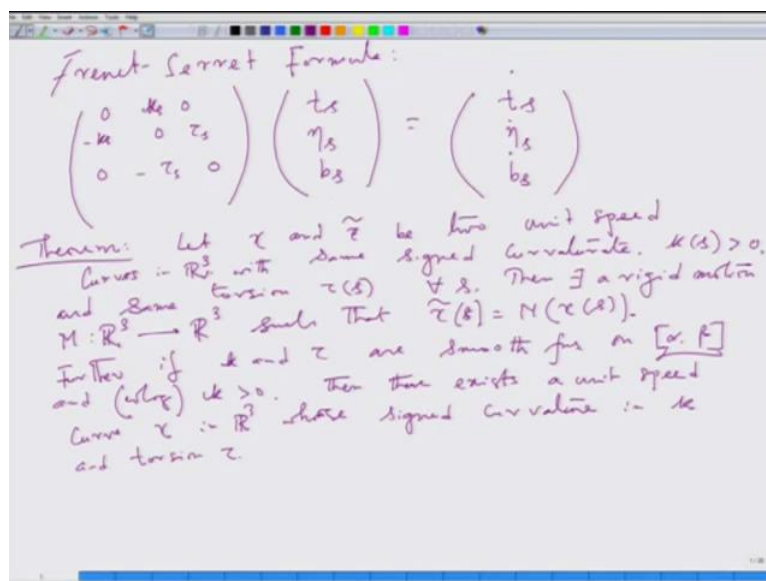 Frenet-Serret Formula:
( 0 κs 0 ) ( ts ) = ( ṫs )
( -κs 0 τs ) ( ηs ) ( η̇s )
( 0 - τs 0 ) ( bs ) ( ḃs )
Theorem: Let γ and γ̃ be two unit speed
Curves in ℝ³ with same signed curvature. κ(s) > 0.
and same torsion τ(s) ∀ s. Then ∃ a rigid motion
M : ℝ³ → ℝ³ such that γ̃(s) = M(γ(s)).
Further if κ and τ are smooth fns on [α, β]
and (wlog) κ > 0. Then there exists a unit speed
Curve γ in ℝ³ whose signed curvature is κ
and torsion τ.